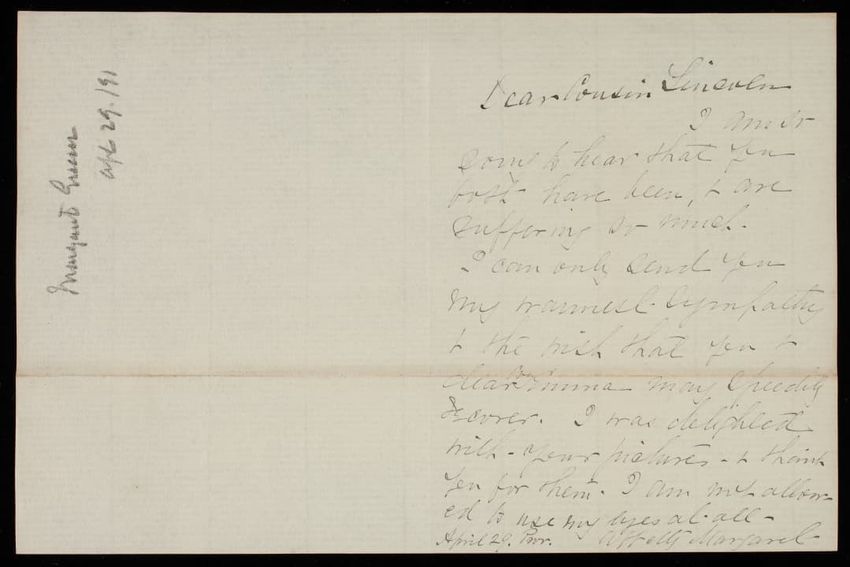 Margaret Greene
Apl 29. /91
Dear Cousin Lincoln
I am so
sorry to hear that you
both have been, & are
suffering so much.
I can only send you
my warmest sympathy
& the wish that you &
dear Emma may speedily
recover. I was delighted
with your pictures - & thank
you for them. I am not allow-
ed to use my eyes at all -
April 29. Mar. Aff'tly Margaret